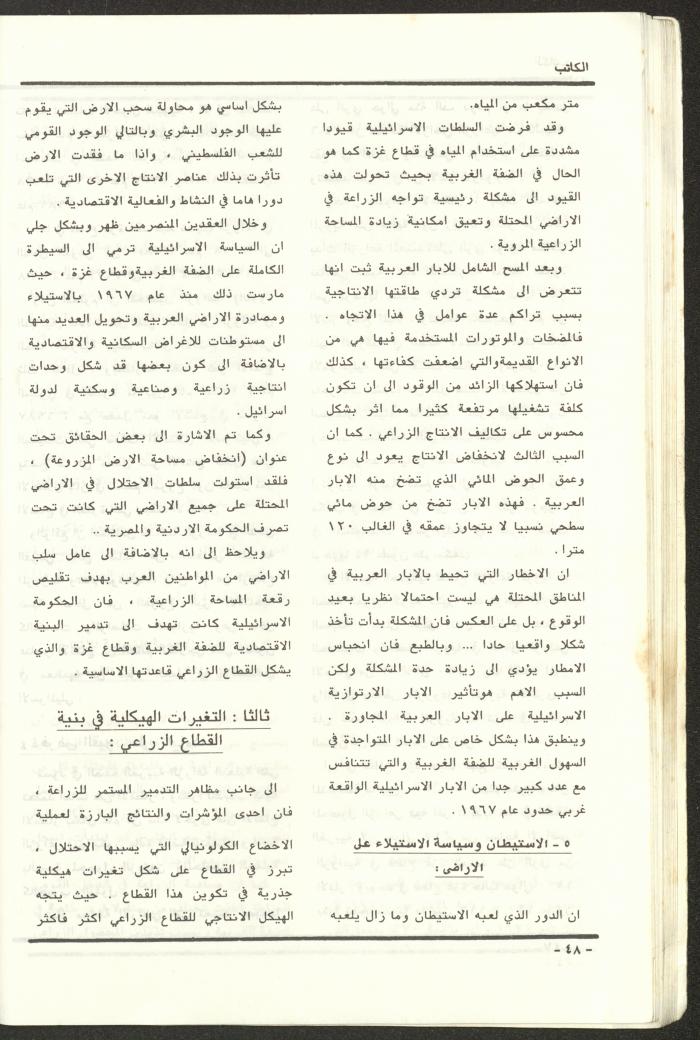 الكاتب
متر مكعب من المياه.
وقد فرضت السلطات الاسرائيلية قيودا
مشددة على استخدام المياه في قطاع غزة كما هو
الحال في الضفة الغربية بحيث تحولت هذه
القيود الى مشكلة رئيسية تواجه الزراعة في
الاراضي المحتلة وتعيق امكانية زيادة المساحة
الزراعية المروية .
وبعد المسح الشامل للابار العربية ثبت انها
تتعرض الى مشكلة تردي طاقتها الانتاجية
بسبب تراكم عدة عوامل في هذا الاتجاه .
فالمضخات والموتورات المستخدمة فيها هي من
الانواع القديمةوالتي اضعفت كفاءتها ، كذلك
فان استهلاكها الزائد من الوقود الى ان تكون
كلفة تشغيلها مرتفعة كثيرا مما اثر بشكل
محسوس على تكاليف الانتاج الزراعي . كما ان
السبب الثالث لانخفاض الانتاج يعود الى نوع
وعمق الحوض المائي الذي تضخ منه الابار
العربية . فهذه الابار تضخ من حوض مائي
سطحي نسبيا لا يتجاوز عمقه في الغالب ١٢٠
مترا .
ان الاخطار التي تحيط بالابار العربية في
المناطق المحتلة هي ليست احتمالا نظريا بعيد
الوقوع ، بل على العكس فان المشكلة بدأت تأخذ
شكلا واقعيا حادا ... وبالطبع فان انحباس
الامطار يؤدي الى زيادة حدة المشكلة ولكن
السبب الاهم هوتأثير الابار الارتوازية
الاسرائيلية على الابار العربية المجاورة .
وينطبق هذا بشكل خاص على الابار المتواجدة في
السهول الغربية للضفة الغربية والتي تتنافس
مع عدد كبير جدا من الابار الاسرائيلية الواقعة
غربي حدود عام ١٩٦٧ .
٥ - الاستيطان وسياسة الاستيلاء على
الاراضى :
ان الدور الذي لعبه الاستيطان وما زال يلعبه
بشكل اساسي هو محاولة سحب الارض التي يقوم
عليها الوجود البشري وبالتالي الوجود القومي
للشعب الفلسطيني ، واذا ما فقدت الارض
تأثرت بذلك عناصر الانتاج الاخرى التي تلعب
دورا هاما في النشاط والفعالية الاقتصادية .
وخلال العقدين المنصرمين ظهر وبشكل جلي
ان السياسة الاسرائيلية ترمي الى السيطرة
الكاملة على الضفة الغربيةوقطاع غزة ، حيث
مارست ذلك منذ عام ١٩٦٧ بالاستيلاء
ومصادرة الاراضي العربية وتحويل العديد منها
الى مستوطنات للاغراض السكانية والاقتصادية
بالاضافة الى كون بعضها قد شكل وحدات
انتاجية زراعية وصناعية وسكنية لدولة
اسرائيل .
وكما تم الاشارة الى بعض الحقائق تحت
عنوان (انخفاض مساحة الارض المزروعة) ،
فلقد استولت سلطات الاحتلال في الاراضي
المحتلة على جميع الاراضي التي كانت تحت
تصرف الحكومة الاردنية والمصرية ..
ويلاحظ الى انه بالاضافة الى عامل سلب
الاراضي من المواطنين العرب بهدف تقليص
رقعة المساحة الزراعية ، فان الحكومة
الاسرائيلية كانت تهدف الى تدمير البنية
الاقتصادية للضفة الغربية وقطاع غزة والذي
يشكل القطاع الزراعي قاعدتها الاساسية .
ثالثا : التغيرات الهيكلية في بنية
القطاع الزراعي :
الى جانب مظاهر التدمير المستمر للزراعة ،
فان احدى المؤشرات والنتائج البارزة لعملية
الاخضاع الكولونيالي التي يسببها الاحتلال ،
تبرز في القطاع على شكل تغيرات هيكلية
جذرية في تكوين هذا القطاع . حيث يتجه
الهيكل الانتاجي للقطاع الزراعي اكثر فاكثر
- ٤٨ -